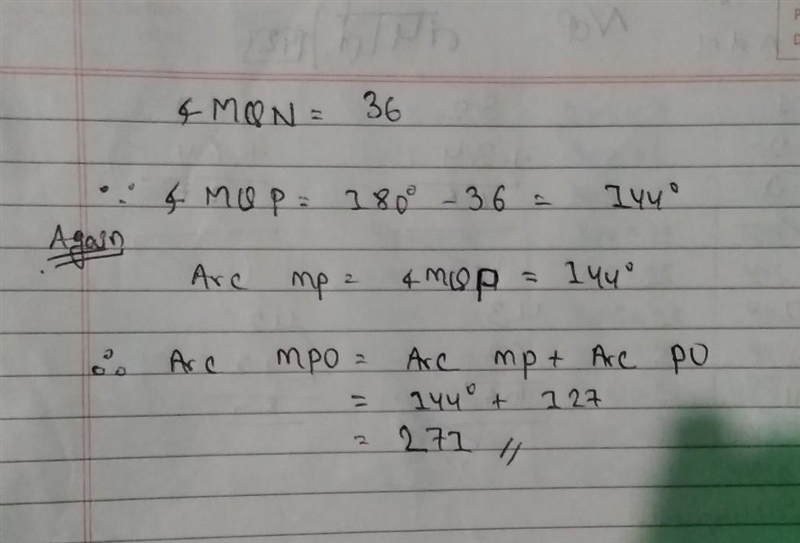 ∡ MQN = 36
∵ ∡ MQP = 180° - 36 = 144°
Again
Arc mp = ∡MQP = 144°
∴ Arc MPO = Arc mp + Arc PO
= 144° + 127
= 271 //